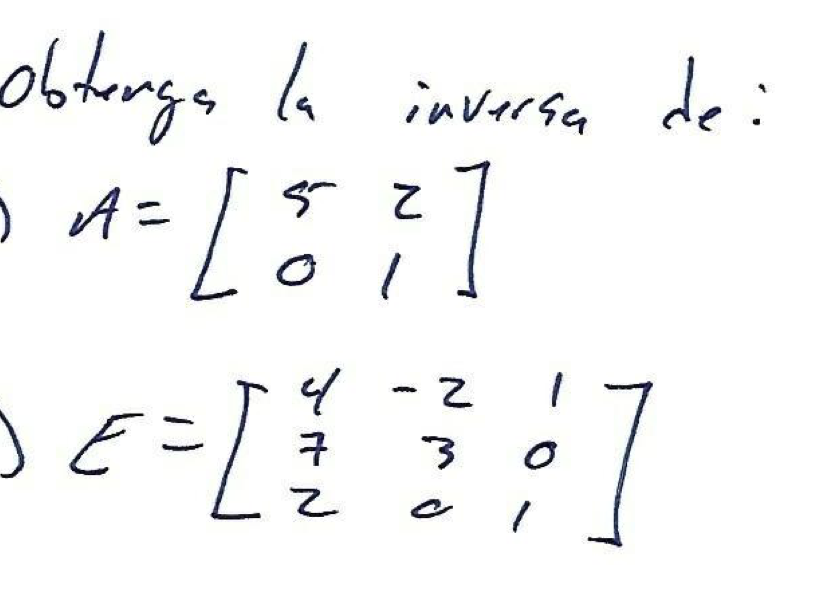 obtenga la inversa de:
) A = [ 5 2
0 1 ]
) E = [ 4 -2 1
7 3 0
2 0 1 ]